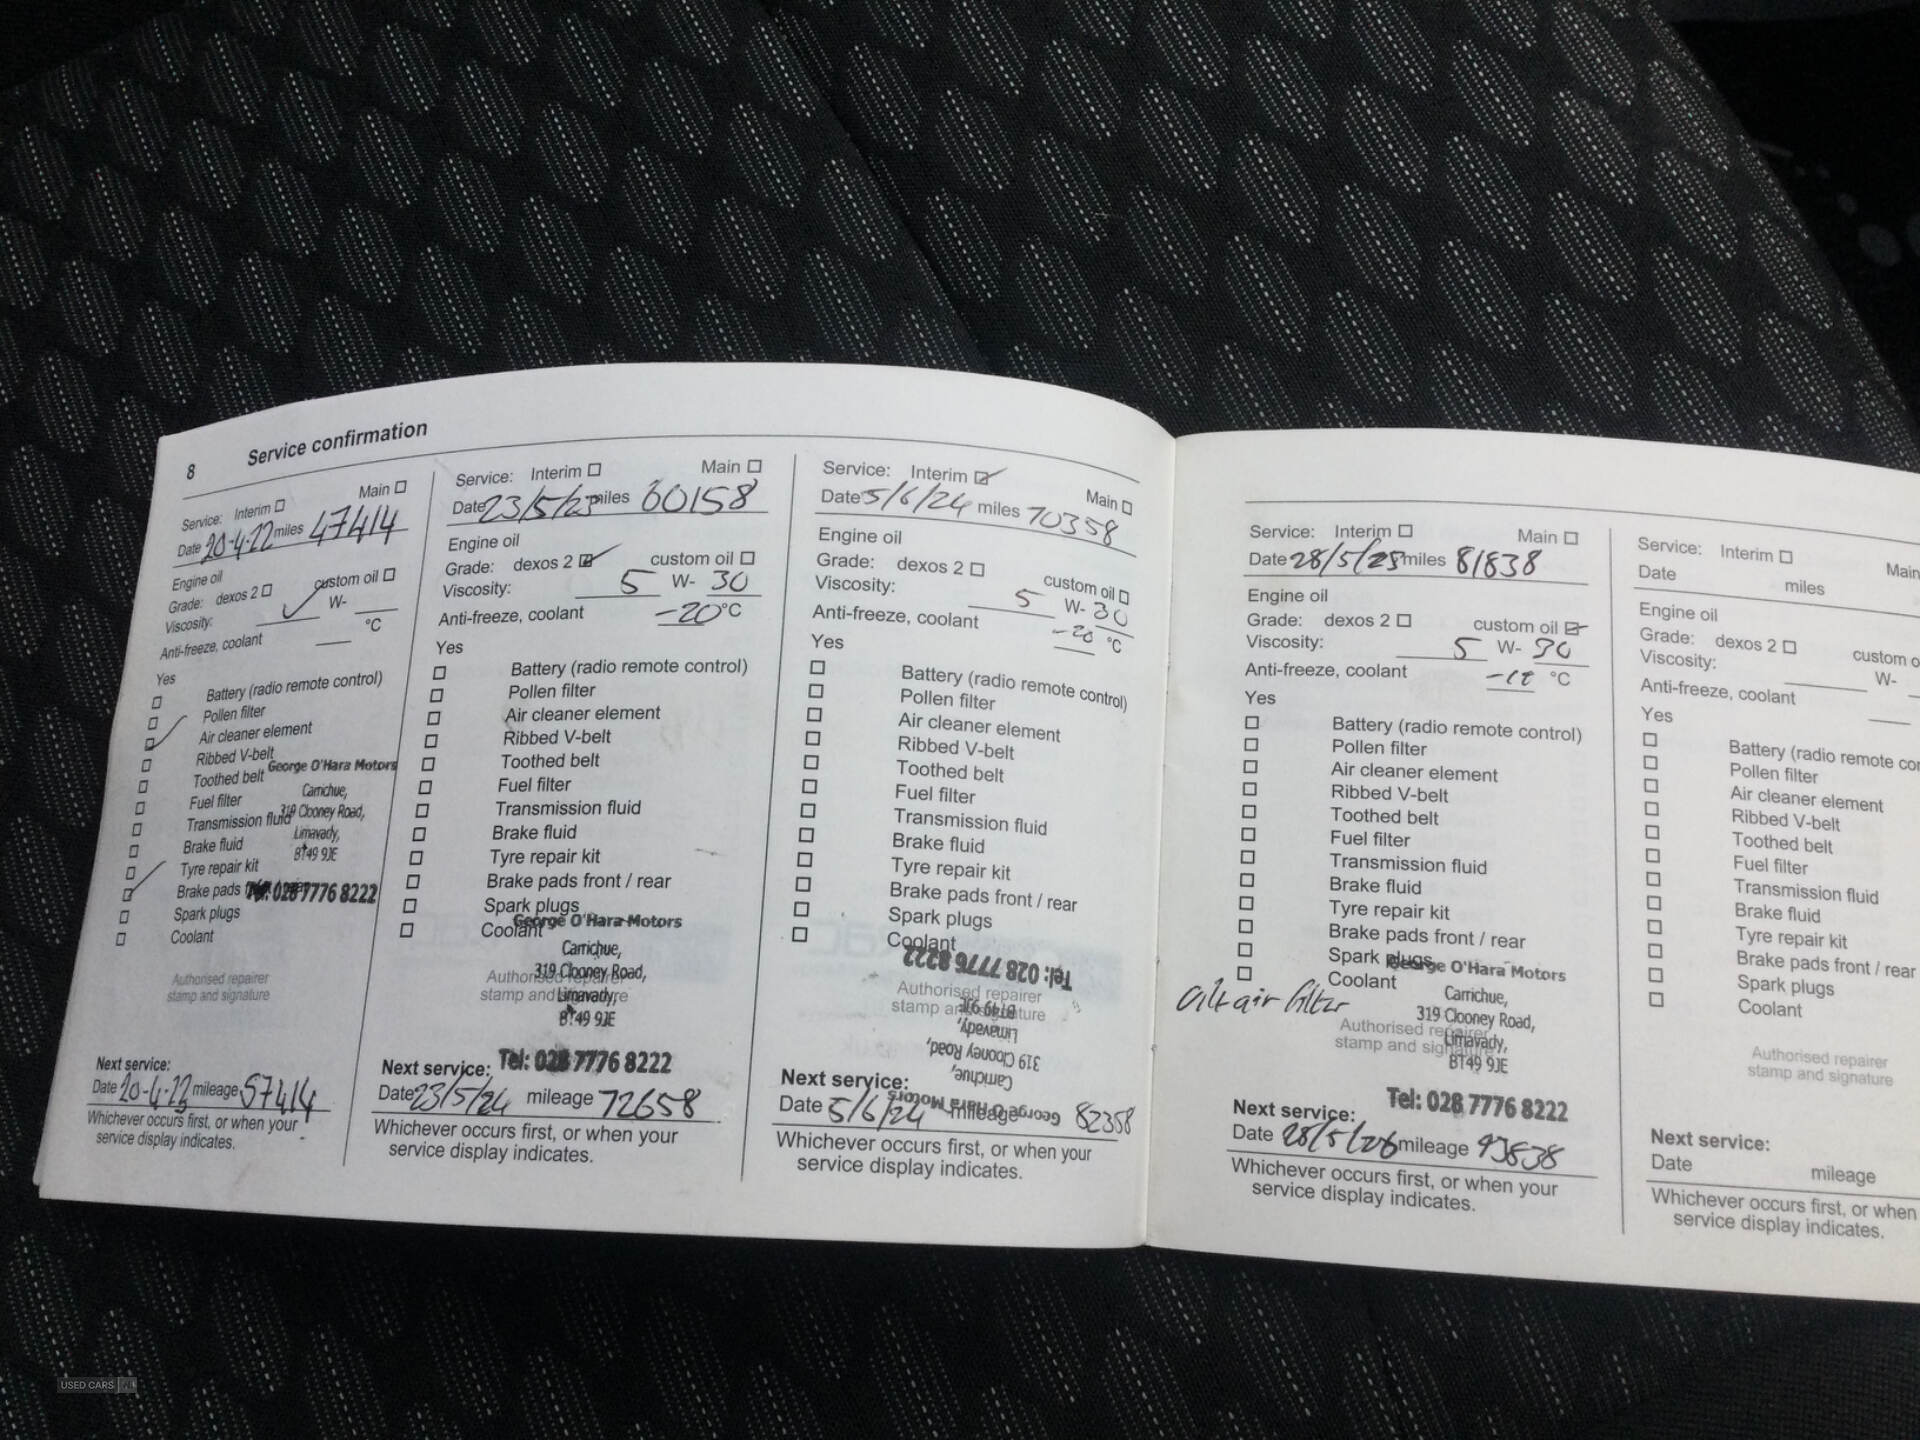 8 Service confirmation
Service: Interim Main
Date 20-4-22 miles 47414
Engine oil
Grade: dexos 2 custom oil
Viscosity: W-
Anti-freeze, coolant °C
Yes
Battery (radio remote control)
Pollen filter
Air cleaner element
Ribbed V-belt
Toothed belt
Fuel filter
Transmission fluid
Brake fluid
Tyre repair kit
Brake pads
Spark plugs
Coolant
George O'Hara Motors
Carrichue,
319 Clooney Road,
Limavady,
BT49 9JE
Tel: 028 7776 8222
Authorised repairer
stamp and signature
Next service:
Date mileage 57414
Whichever occurs first, or when your
service display indicates.
Service: Interim Main
Date 23/5/23 miles 60158
Engine oil
Grade: dexos 2 custom oil
Viscosity: 5 W- 30
Anti-freeze, coolant -20 °C
Yes
Battery (radio remote control)
Pollen filter
Air cleaner element
Ribbed V-belt
Toothed belt
Fuel filter
Transmission fluid
Brake fluid
Tyre repair kit
Brake pads front / rear
Spark plugs
Coolant
George O'Hara Motors
Carrichue,
319 Clooney Road,
Limavady,
BT49 9JE
Authorised repairer
stamp and signature
Tel: 028 7776 8222
Next service:
Date 23/5/24 mileage 72658
Whichever occurs first, or when your
service display indicates.
Service: Interim Main
Date 5/6/24 miles 70358
Engine oil
Grade: dexos 2 custom oil
Viscosity: 5 W- 30
Anti-freeze, coolant -20 °C
Yes
Battery (radio remote control)
Pollen filter
Air cleaner element
Ribbed V-belt
Toothed belt
Fuel filter
Transmission fluid
Brake fluid
Tyre repair kit
Brake pads front / rear
Spark plugs
Coolant
George O'Hara Motors
Carrichue,
319 Clooney Road,
Limavady,
BT49 9JE
Tel: 028 7776 8222
Authorised repairer
stamp and signature
Next service:
Date 5/6/24 mileage 82358
Whichever occurs first, or when your
service display indicates.
Service: Interim Main
Date 28/5/25 miles 81838
Engine oil
Grade: dexos 2 custom oil
Viscosity: 5 W- 30
Anti-freeze, coolant °C
Yes
Battery (radio remote control)
Pollen filter
Air cleaner element
Ribbed V-belt
Toothed belt
Fuel filter
Transmission fluid
Brake fluid
Tyre repair kit
Brake pads front / rear
Spark plugs
Coolant
air filter
George O'Hara Motors
Carrichue,
319 Clooney Road,
Limavady,
BT49 9JE
Authorised repairer
stamp and signature
Tel: 028 7776 8222
Next service:
Date 28/5/26 mileage 93838
Whichever occurs first, or when your
service display indicates.
Service: Interim Main
Date miles
Engine oil
Grade: dexos 2 custom o
Viscosity: W-
Anti-freeze, coolant
Yes
Battery (radio remote con
Pollen filter
Air cleaner element
Ribbed V-belt
Toothed belt
Fuel filter
Transmission fluid
Brake fluid
Tyre repair kit
Brake pads front / rear
Spark plugs
Coolant
Authorised repairer
stamp and signature
Next service:
Date mileage
Whichever occurs first, or when
service display indicates.
USED CARS NI